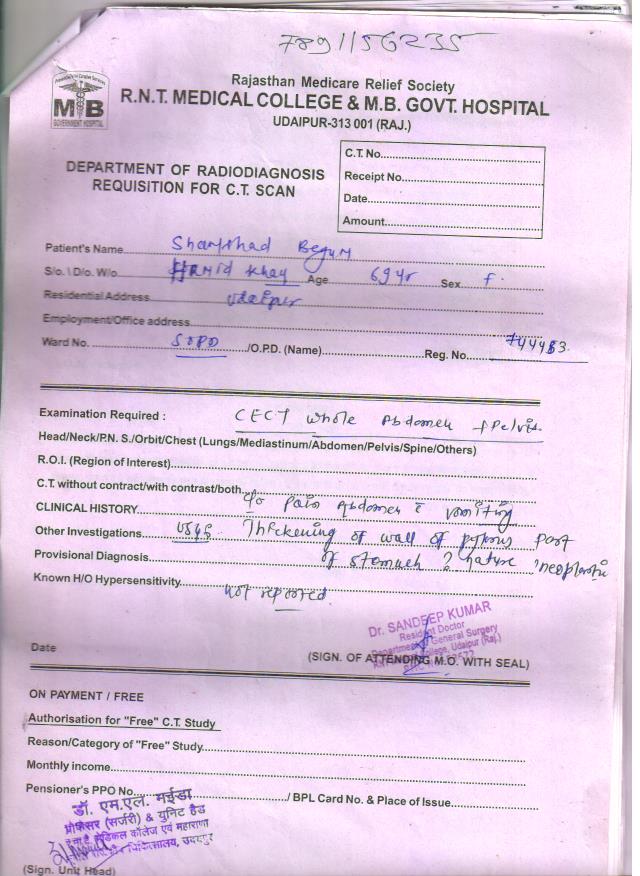 7891156235
Rajasthan Medicare Relief Society
R.N.T. MEDICAL COLLEGE & M.B. GOVT. HOSPITAL
UDAIPUR-313 001 (RAJ.)
MB
GOVERNMENT HOSPITAL
DEPARTMENT OF RADIODIAGNOSIS
REQUISITION FOR C.T. SCAN
C.T. No.
Receipt No.
Date
Amount
Patient's Name Shamshad Begum
S/o. \ D/o. W/o Hamid Khan Age 69 yr Sex f.
Residential Address Udaipur
Employment/Office address
Ward No. SOPD /O.P.D. (Name) Reg. No.
Examination Required : CECT whole Abdomen + Pelvis.
Head/Neck/P.N. S./Orbit/Chest (Lungs/Mediastinum/Abdomen/Pelvis/Spine/Others)
R.O.I. (Region of Interest)
C.T. without contract/with contrast/both
CLINICAL HISTORY c/o Pain Abdomen c vomiting
Other Investigations USG Thickening of wall of pylorus part
Provisional Diagnosis of stomach ? nature neoplastic
Known H/O Hypersensitivity not reported
Dr. SANDEEP KUMAR
Resident Doctor
Department of General Surgery
College, Udaipur (Raj.)
Date (SIGN. OF ATTENDING M.O. WITH SEAL)
ON PAYMENT / FREE
Authorisation for "Free" C.T. Study
Reason/Category of "Free" Study
Monthly income
Pensioner's PPO No. / BPL Card No. & Place of Issue
डॉ. एम.एल. मईडा
प्रोफेसर (सर्जरी) & युनिट हैड
मेडिकल कॉलेज एवं महाराणा
चिकित्सालय, उदयपुर
(Sign. Unit Head)